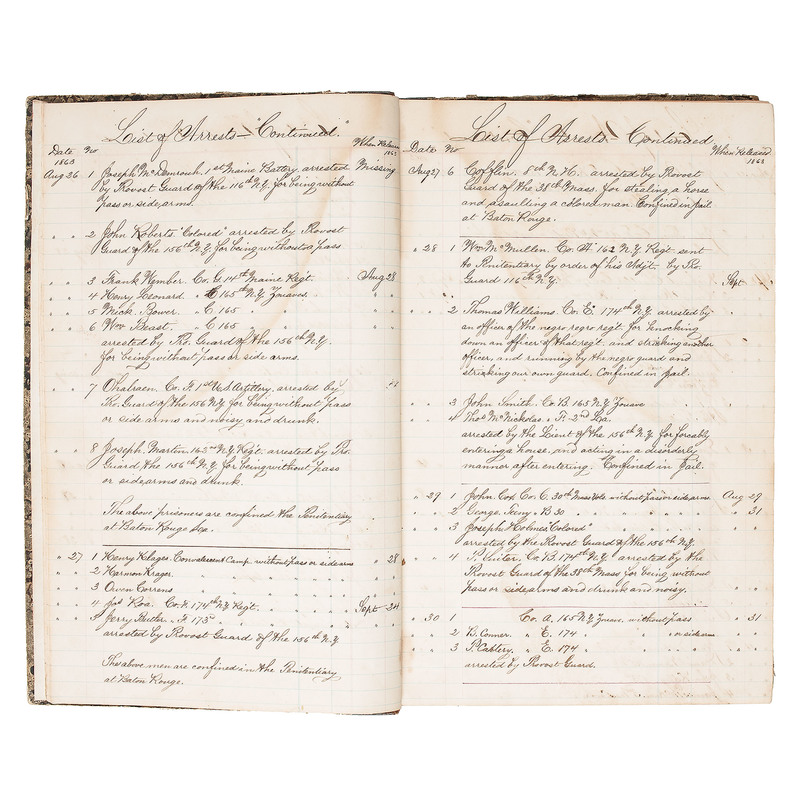 List of Arrests — "Continued."
Date No When Released
1863 1863
Aug 26 1 Joseph McDenrouch. 1st Maine Battery. arrested Missing
by Provost Guard of the 116th N.Y. for being without
pass or side arms.
" " 2 John Roberts "Colored" arrested by Provost
Guard of the 156th N.Y. for being without a pass
" " 3 Frank Wember. Co. G 14th Maine Regt. Aug 28
" " 4 Henry Leonard. " 165th N.Y. Zouaves. " "
" " 5 Mick. Bower. " C 165 " " "
" " 6 Wm Beast. " C 165 " " "
arrested by Pro. Guard of the 156th N.Y.
for being without pass or side arms.
" " 7 Co. 1st U.S. Artillery, arrested by " 28
Pro. Guard of the 156 N.Y. for being without pass
or side arms and noisy and drunk.
" " 8 Joseph Martin. 162nd N.Y. Regt. arrested by Pro.
Guard the 156th N.Y. for being without pass
or side arms and drunk.
The above prisoners are confined the Penitentiary
at Baton Rouge La.
" 27 1 Henry Klages. Convalescent Camp. without pass or side arms " 28
" " 2 Harmon Krager. " " " "
" " 3 Owen Correns " " " "
" " 4 Jas Roa. Co. K 174th N.Y. Regt. " " " Sept 24
" " 5 Jerry Butler. " 173d " " " "
arrested by Provost Guard of the 156th N.Y.
The above men are confined in the Penitentiary
at Baton Rouge.
List of Arrests — Continued
Date No When Released
1863
Aug 27 6 Cofflin. 8th N.H. arrested by Provost
Guard of the 38th Mass. for stealing a horse
and assaulting a colored man. Confined in Jail
at Baton Rouge.
" 28 1 Wm McMullen. Co. 162 N.Y. Regt. sent
to Penitentiary by order of his Adjt. by Pro.
Guard 116th N.Y. Sept "
" " 2 Thomas Williams. Co. E. 174th N.Y. arrested by
an officer of the negro regt. for knocking
down an officer of that regt. and striking another
officer, and running by the negro guard and
striking our own guard. Confined in Jail.
" " 3 John Smith. Co. B. 165 N.Y. Zouave
" " 4 Thos McNickoles. " 2nd La.
arrested by the Lieut of the 156th N.Y. for forcably
entering a house, and acting in a disorderly
manner after entering. Confined in Jail.
" 29 1 John Cox Co. C. 30th Mass Vols. without pass or side arms Aug 29
" " 2 George. B 30 " " " " 31
" " 3 Joseph Holmes "Colored" " " "
arrested by the Provost Guard of the 156th N.Y.
" " 4 Co. B. 174th N.Y. arrested by the
Provost Guard of the 38th Mass for being without
pass or side arms and drunk and noisy. " "
" 30 1 Co. A. 165 N.Y. Zouav. without pass " 31
" " 2 B. Conner. " E. 174 " " " or side arms " "
" " 3 P. Cablery. " E. 174 " " " " "
arrested by Provost Guard.